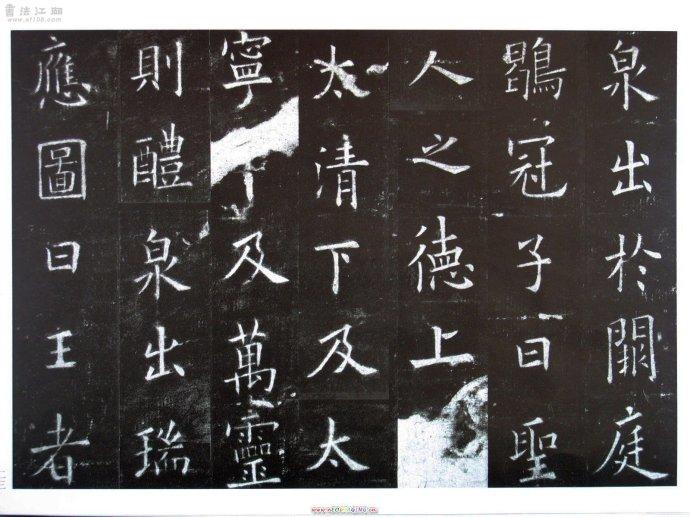 書法江湖
www.sf108.com
泉出於闕庭
鶡冠子曰聖
人之德上
太清下及太
寧及萬靈
則醴泉出瑞
應圖曰王者